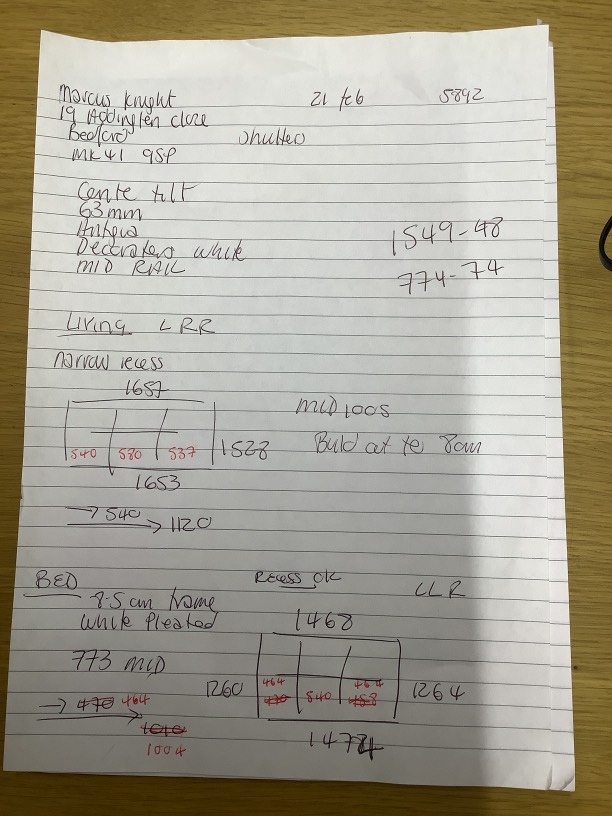 Marcus Knight 21 feb 5892
19 Addington close
Bedford Shutters
MK41 9SP
Centre tilt
63mm
Antigua
Decorators white
MID RAIL
1549-48
774-74
Living LRR
narrow recess
1657
MID 1005
540 580 537 1528
Build out to 8cm
1653
→ 540
→ 1120
BED Recess OK LLR
8.5 cm frame
White Pleated 1468
773 MID
464 464
1260 470 540 458 1264
→ 470 464
1010
1004
1474